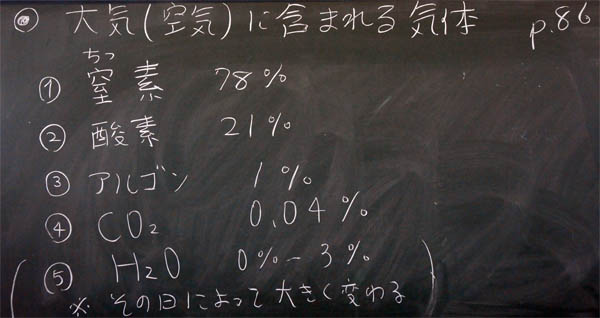 ◎ 大気(空気)に含まれる気体 p.86
ちっ
① 窒素 78%
② 酸素 21%
③ アルゴン 1%
④ CO₂ 0.04%
(⑤ H₂O 0%-3%
※ その日によって大きく変わる)